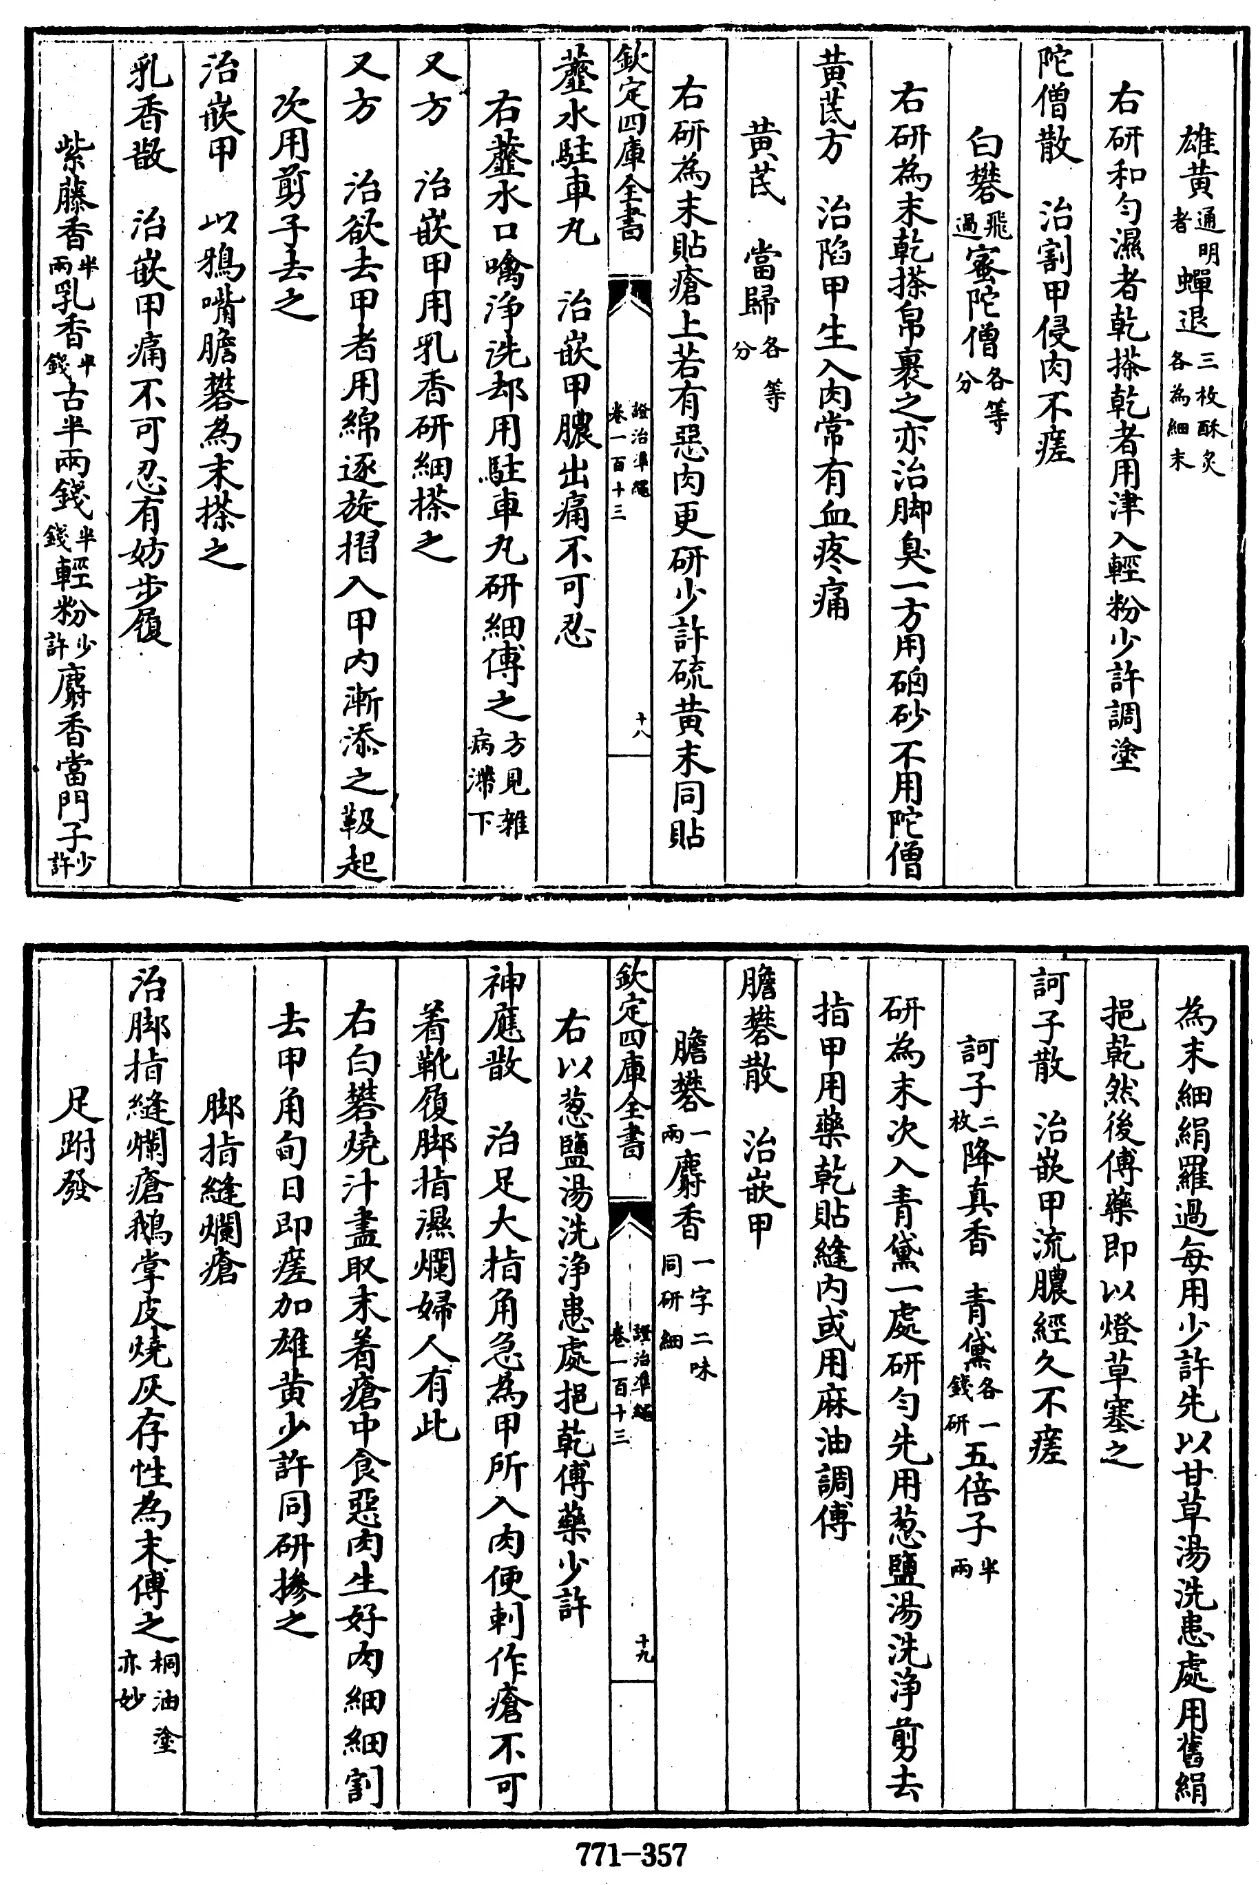 雄黃通明者蟬退三枚酥炙各為細末
右研和勻濕者乾搽乾者用津入輕粉少許調塗
陀僧散　治割甲侵肉不瘥
白礬飛過蜜陀僧各等分
右研為末乾搽帛裹之亦治脚臭一方用硇砂不用陀僧
黃芪方　治陷甲生入肉常有血疼痛
黃芪　當歸各等分
右研為末貼瘡上若有惡肉更研少許硫黃末同貼
欽定四庫全書　證治準繩卷一百十三　十八
虀水駐車丸　治嵌甲膿出痛不可忍
右虀水口噙淨洗却用駐車丸研細傅之方見雜病滯下
又方　治嵌甲用乳香研細搽之
又方　治欲去甲者用綿逐旋摺入甲内漸添之靸起
次用剪子去之
治嵌甲　以鴉嘴膽礬為末搽之
乳香散　治嵌甲痛不可忍有妨步履
紫藤香半兩乳香半錢古半兩錢半錢輕粉少許麝香當門子少許
為末細絹羅過每用少許先以甘草湯洗患處用舊絹
挹乾然後傅藥即以燈草塞之
訶子散　治嵌甲流膿經久不瘥
訶子二枚降真香　青黛各一錢研五倍子半兩
研為末次入青黛一處研勻先用葱鹽湯洗淨剪去
指甲用藥乾貼縫内或用麻油調傅
膽礬散　治嵌甲
膽礬一兩麝香一字二味同研細
欽定四庫全書　證治準繩卷一百十三　十九
右以葱鹽湯洗淨患處挹乾傅藥少許
神應散　治足大指角急為甲所入肉便刺作瘡不可
着靴履脚指濕爛婦人有此
右白礬燒汁盡取末着瘡中食惡肉生好肉細細割
去甲角旬日即瘥加雄黃少許同研摻之
脚指縫爛瘡
治脚指縫爛瘡鵝掌皮燒灰存性為末傅之桐油塗亦妙
足跗發
771-357